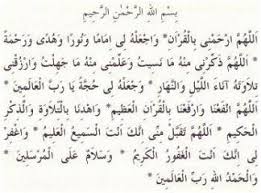 بِسْمِ اللهِ الرَّحْمٰنِ الرَّحِيْمِ
اَللّٰهُمَّ ارْحَمْنِيْ بِالْقُرْآنِ * وَاجْعَلْهُ لِيْ اِمَامًا وَنُوْرًا وَهُدًى وَرَحْمَةً
* اَللّٰهُمَّ ذَكِّرْنِيْ مِنْهُ مَا نَسِيْتُ وَعَلِّمْنِيْ مِنْهُ مَا جَهِلْتُ وَارْزُقْنِيْ
تِلَاوَتَهُ آنَاءَ اللَّيْلِ وَالنَّهَارِ * وَاجْعَلْهُ لِيْ حُجَّةً يَا رَبَّ الْعَالَمِيْنَ *
اَللّٰهُمَّ انْفَعْنَا وَارْفَعْنَا بِالْقُرْآنِ الْعَظِيْمِ * وَاهْدِنَا بِالتِّلَاوَةِ وَالذِّكْرِ
الْحَكِيْمِ * اَللّٰهُمَّ تَقَبَّلْ مِنِّيْ اِنَّكَ اَنْتَ السَّمِيْعُ الْعَلِيْمُ * وَاغْفِرْ
لِيْ اِنَّكَ اَنْتَ الْغَفُوْرُ الْكَرِيْمُ * وَسَلَامٌ عَلَى الْمُرْسَلِيْنَ *
وَالْحَمْدُ لِلّٰهِ رَبِّ الْعَالَمِيْنَ *